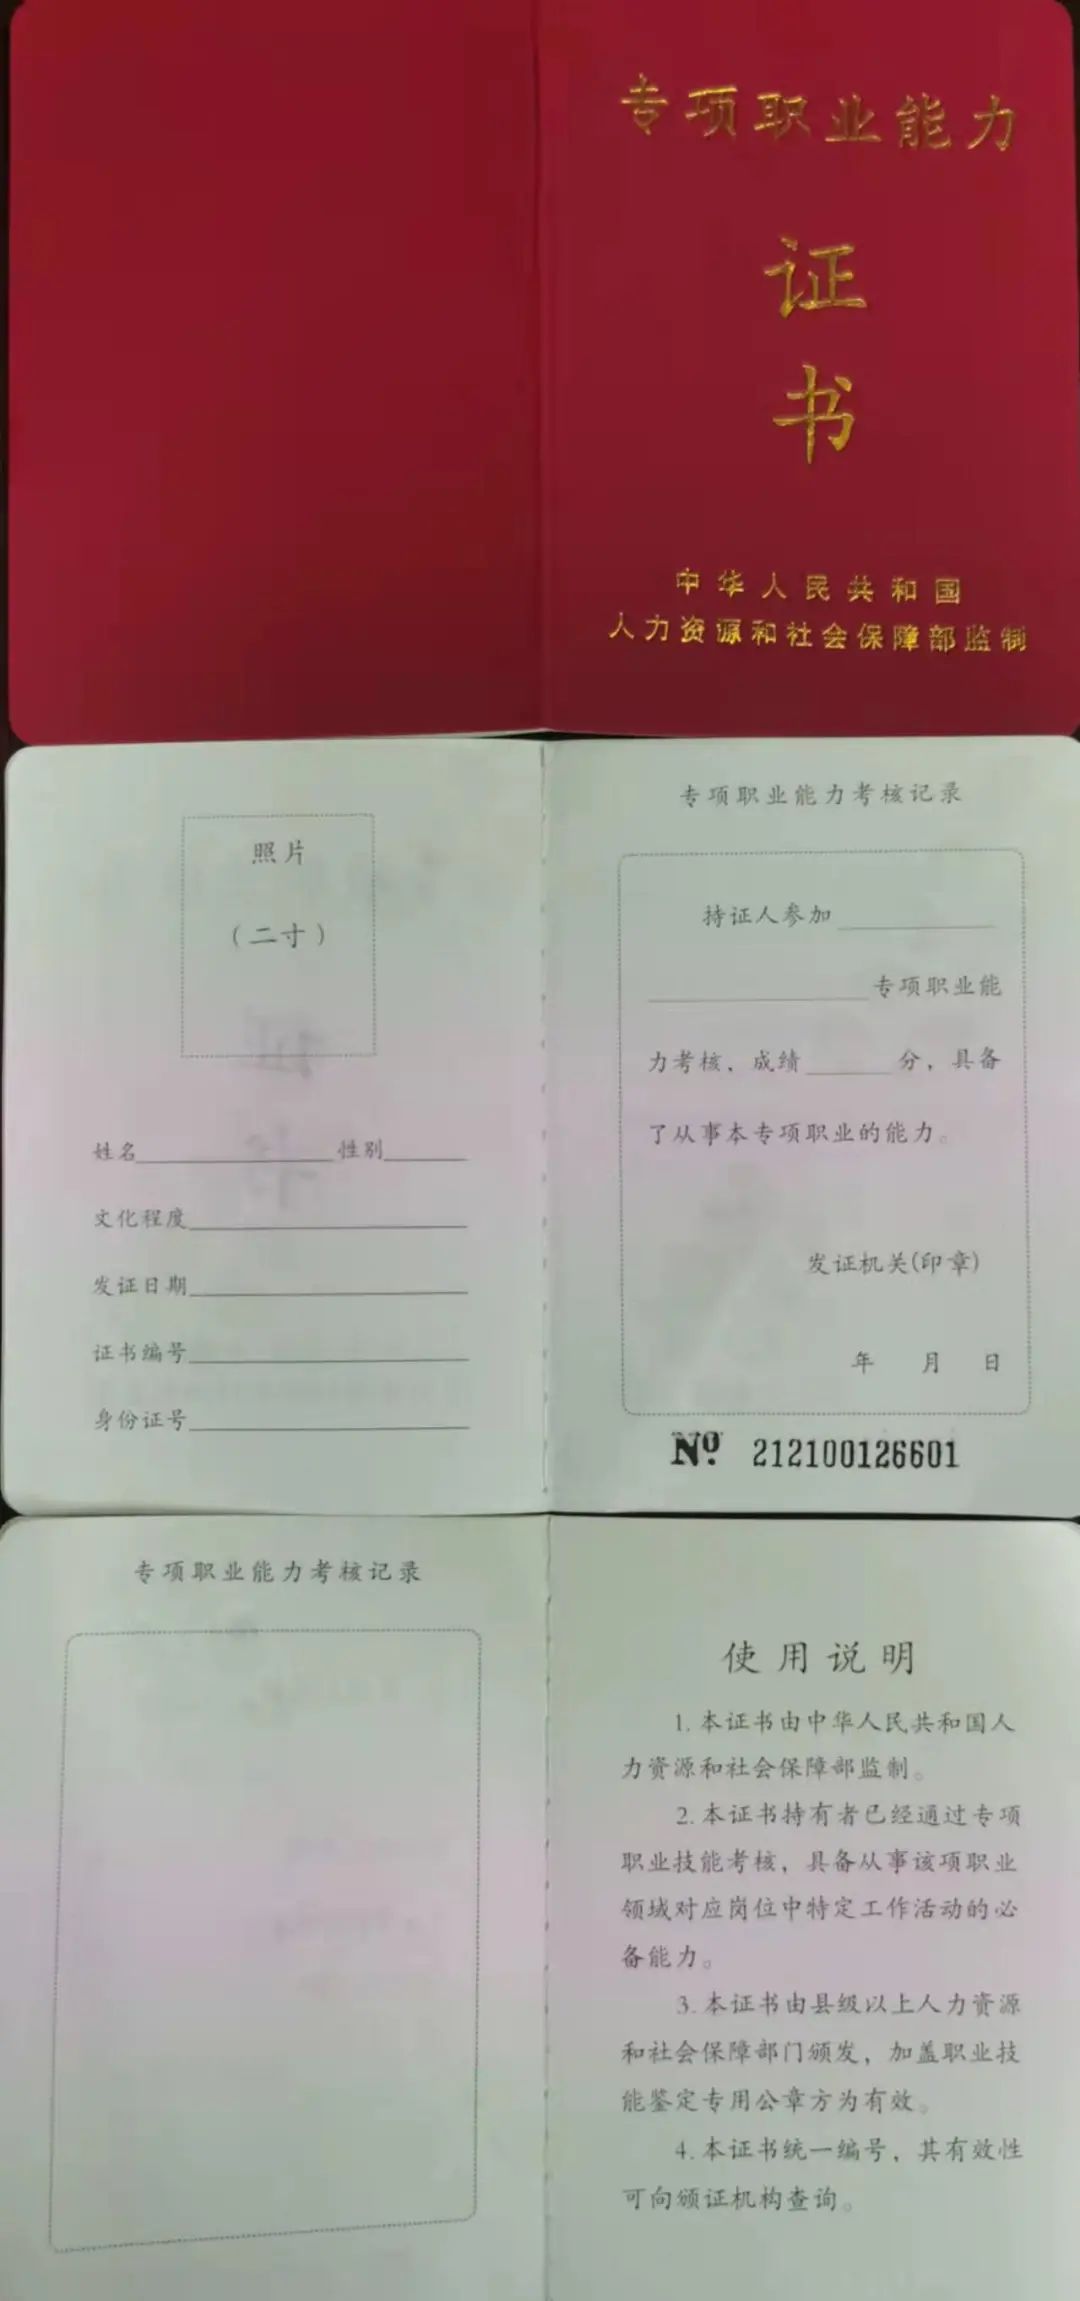 专项职业能力
证
书
中华人民共和国
人力资源和社会保障部监制
照片
（二寸）
姓名 性别
文化程度
发证日期
证书编号
身份证号
专项职业能力考核记录
持证人参加
专项职业能
力考核，成绩 分，具备
了从事本专项职业的能力。
发证机关(印章)
年 月 日
Nº 212100126601
专项职业能力考核记录
使用说明
1.本证书由中华人民共和国人
力资源和社会保障部监制。
2.本证书持有者已经通过专项
职业技能考核，具备从事该项职业
领域对应岗位中特定工作活动的必
备能力。
3.本证书由县级以上人力资源
和社会保障部门颁发，加盖职业技
能鉴定专用公章方为有效。
4.本证书统一编号，其有效性
可向颁证机构查询。